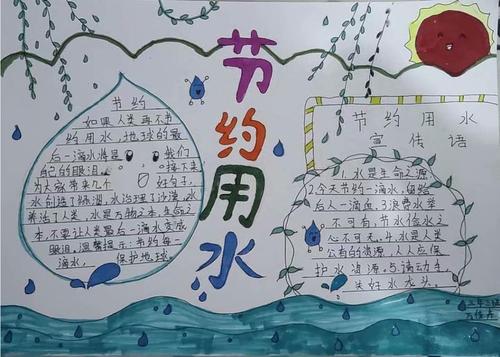 节约
如果人类再不节
约用水,地球的最
后一滴水将是 我们
自己的眼泪。 接下来
为大家带来几个 好句子。
水创造了绿洲,水治理了沙漠,水
养活了人类。水是万物之本,生命之
本,不要让人类最后一滴水变成
眼泪,温馨提示:节约每一
滴水, 保护地球。
节
约
用
水
节约用水
宣传语
1.水是生命之源
2.今天节约一滴水,留给
后人一滴血。3.浪费水举
不可有,节水俭水之
心不可无。4.水是人类
公有的资源,人人应保
护水资源。5.请动动手
关好水龙头。